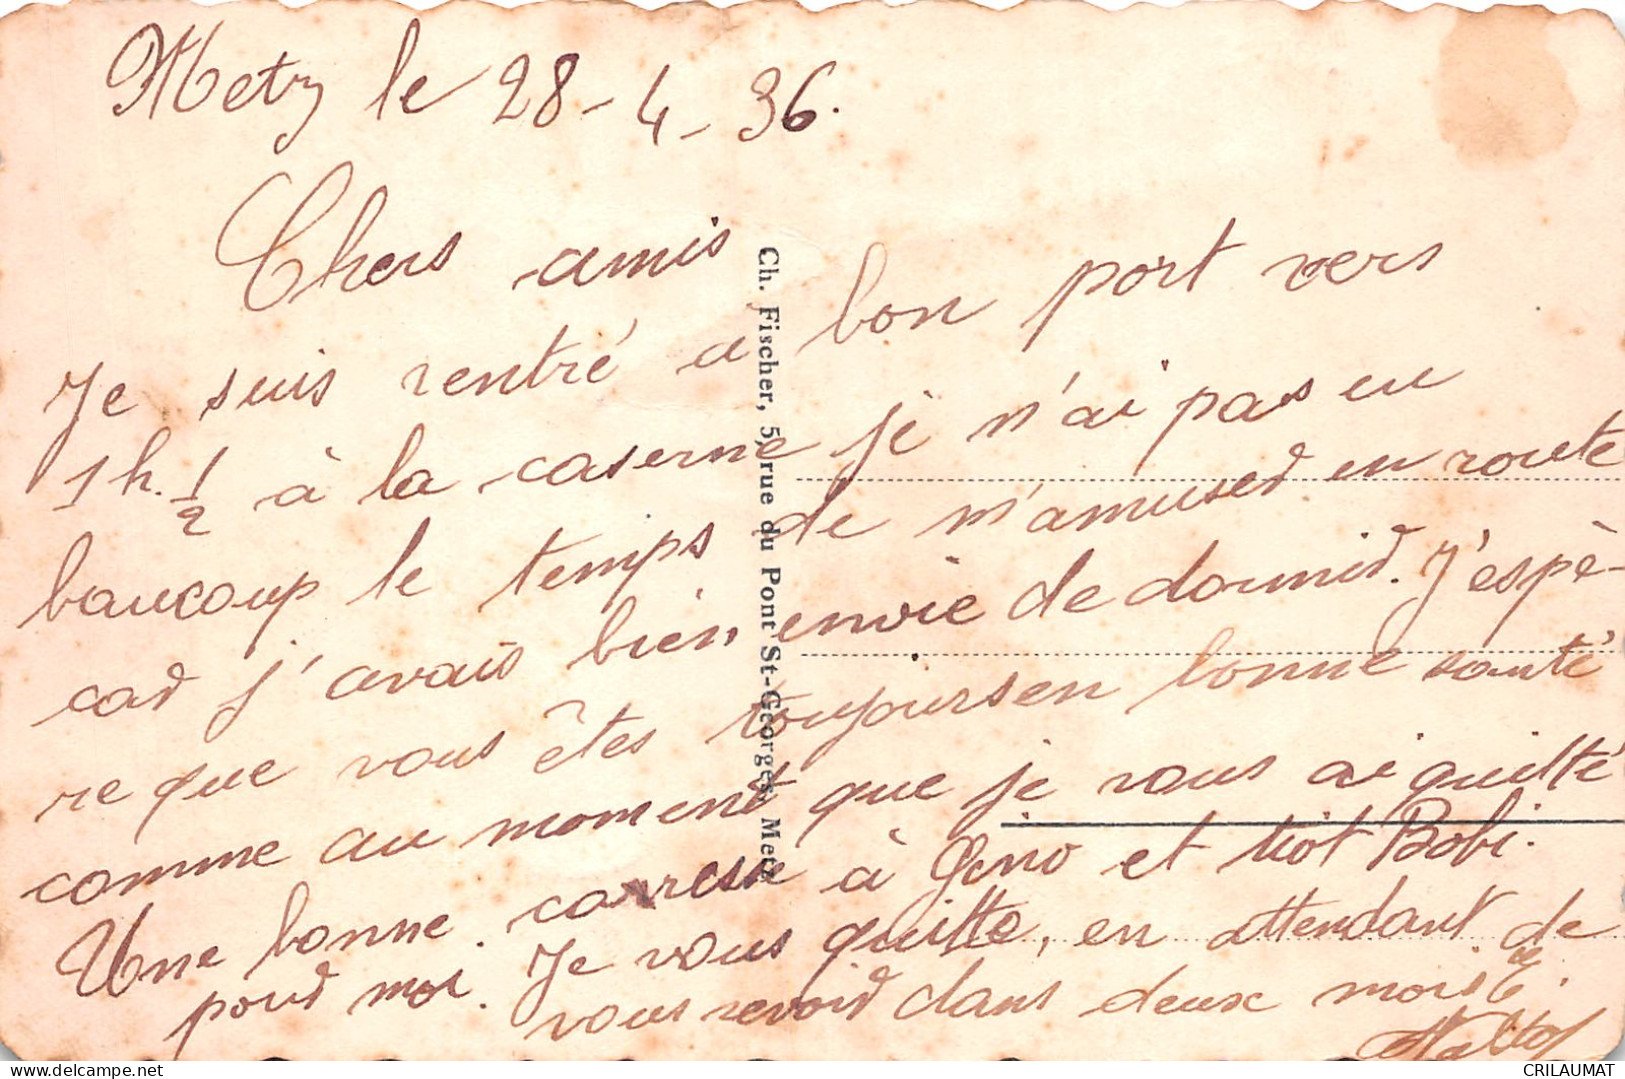 Metz le 28-4-36.
Chers amis
Je suis rentré a bon port vers
1h. 1/2 à la caserne je n'ai pas eu
beaucoup le temps de m'amuser en route
car j'avais bien envie de dormir. J'espè-
re que vous êtes toujours en bonne santé
comme au moment que je vous ai quitté
Une bonne caresse à Gino et tiot Bobi.
pour moi. Je vous quitte, en attendant de
vous revoir dans deux mois
Ch. Fischer, 5, rue du Pont St-Georges, Metz
CRILAUMAT
delcampe.net